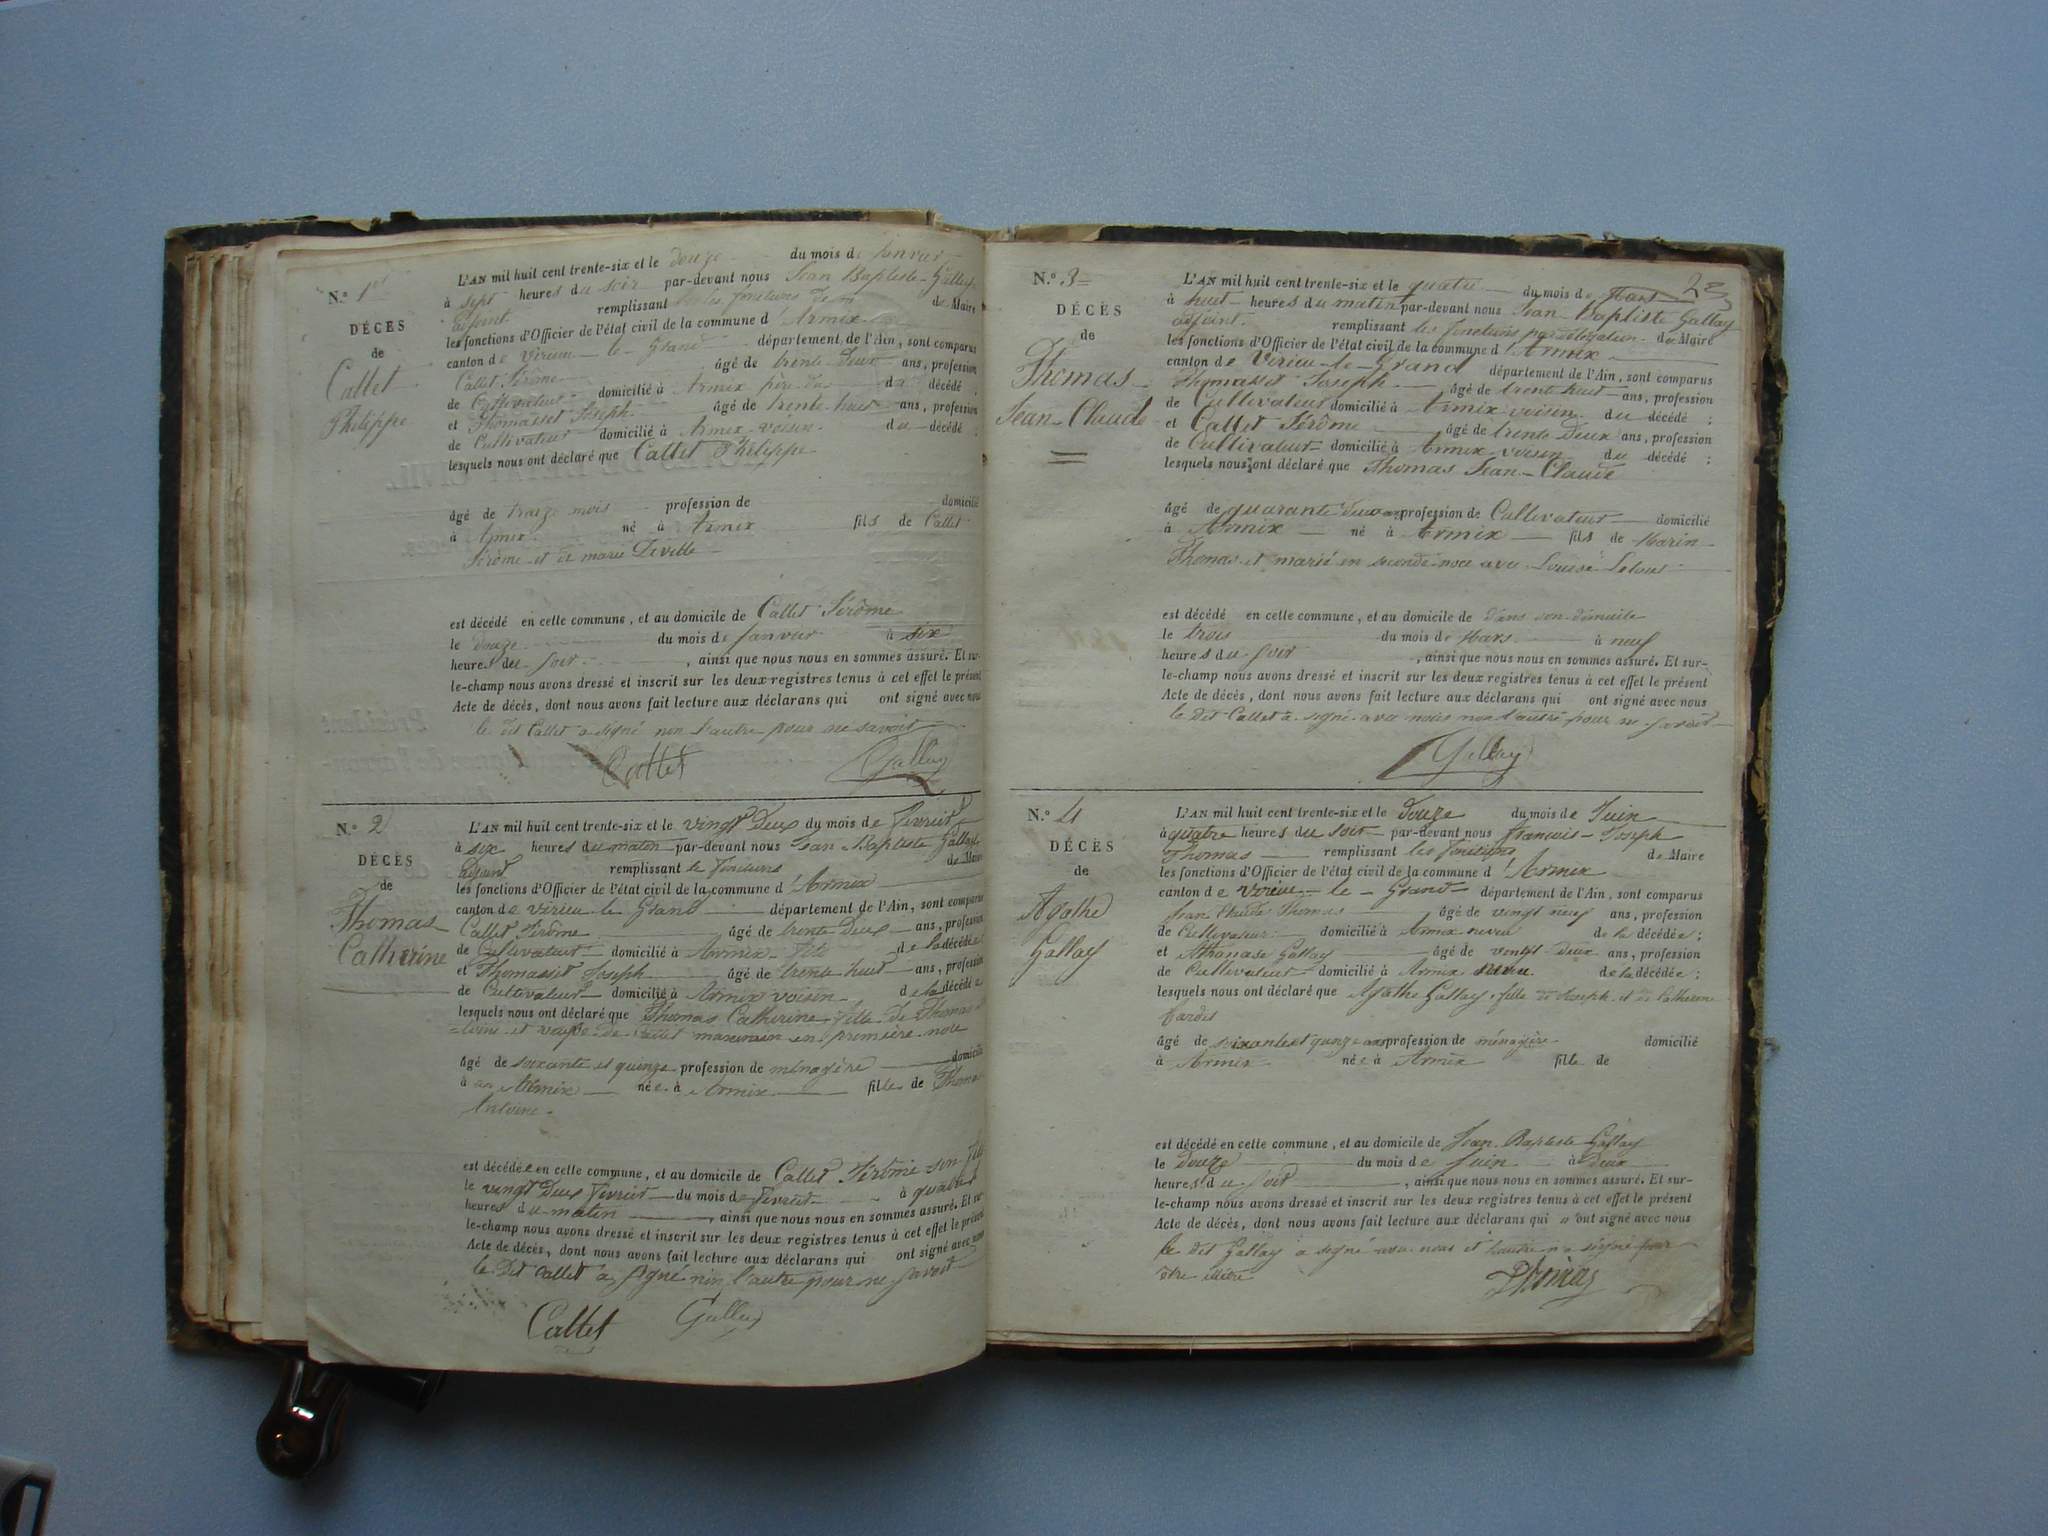 N.º 1er
DÉCÈS
de
Callet
Philippe
L'AN mil huit cent trente-six et le douze du mois de Janvier
à sept heures du soir par-devant nous Jean Baptiste Gallay
adjoint remplissant les fonctions de Maire
les fonctions d'Officier de l'état civil de la commune d'Armix
canton de Virieu-le-Grand département de l'Ain, sont comparus
Callet Jérôme âgé de trente Deux ans, profession
de Cultivateur domicilié à Armix père du décédé ;
et Thomasset Joseph âgé de trente huit ans, profession
de Cultivateur domicilié à Armix voisin du décédé ;
lesquels nous ont déclaré que Callet Philippe
âgé de treize mois profession de domicilié
à Armix né à Armix fils de Callet
Jérôme et de marie Deville
est décédé en cette commune, et au domicile de Callet Jérôme
le douze du mois de Janvier à six
heures du soir , ainsi que nous nous en sommes assuré. Et sur-
le-champ nous avons dressé et inscrit sur les deux registres tenus à cet effet le présent
Acte de décès, dont nous avons fait lecture aux déclarans qui ont signé avec nous
le dit Callet a signé non l'autre pour ne savoir
Callet Gallay
N.º 2
DÉCÈS
de
Thomas
Catherine
L'AN mil huit cent trente-six et le vingt Deux du mois de Fevrier
à six heures du matin par-devant nous Jean Baptiste Gallay
adjoint remplissant les fonctions de Maire
les fonctions d'Officier de l'état civil de la commune d'Armix
canton de Virieu le Grand département de l'Ain, sont comparus
Callet Jérôme âgé de trente Deux ans, profession
de Cultivateur domicilié à Armix fils de la décédée
et Thomasset Joseph âgé de trente huit ans, profession
de Cultivateur domicilié à Armix voisin de la décédée
lesquels nous ont déclaré que Thomas Catherine fille de Thomas
toine et veuve de Callet en première noce
âgé de soixante et quinze profession de ménagère domicilié
à Armix née à Armix fille de Thomas
Antoine
est décédée en cette commune, et au domicile de Callet Jérôme son fils
le vingt Deux Fevrier du mois de Fevrier à quatre
heures du matin , ainsi que nous nous en sommes assuré. Et sur-
le-champ nous avons dressé et inscrit sur les deux registres tenus à cet effet le présent
Acte de décès, dont nous avons fait lecture aux déclarans qui ont signé avec nous
le Dit Callet a signé non l'autre pour ne savoir
Callet Gallay
23
N.º 3
DÉCÈS
de
Thomas
Jean-Claude
L'AN mil huit cent trente-six et le quatre du mois de Mars
à huit heures du matin par-devant nous Jean-Baptiste Gallay
adjoint remplissant les fonctions par délégation de Maire
les fonctions d'Officier de l'état civil de la commune d'Armix
canton de Virieu-le-Grand département de l'Ain, sont comparus
Thomasset Joseph âgé de trente huit ans, profession
de Cultivateur domicilié à Armix voisin du décédé ;
et Callet Jérôme âgé de trente Deux ans, profession
de Cultivateur domicilié à Armix voisin du décédé ;
lesquels nous ont déclaré que Thomas Jean-Claude
âgé de quarante deux ans profession de Cultivateur domicilié
à Armix né à Armix fils de Marin
Thomas et marié en seconde noce avec Louise
est décédé en cette commune, et au domicile de dans son domicile
le trois du mois de Mars à neuf
heures du soir , ainsi que nous nous en sommes assuré. Et sur-
le-champ nous avons dressé et inscrit sur les deux registres tenus à cet effet le présent
Acte de décès, dont nous avons fait lecture aux déclarans qui ont signé avec nous
le dit Callet a signé avec nous non l'autre pour ne savoir
Gallay
N.º 4
DÉCÈS
de
Agathe
Gallay
L'AN mil huit cent trente-six et le Douze du mois de Juin
à quatre heures du soir par-devant nous francois-Joseph
Thomas remplissant les fonctions de Maire
les fonctions d'Officier de l'état civil de la commune d'Armix
canton de Virieu-le-Grand département de l'Ain, sont comparus
Jean Claude Thomas âgé de vingt neuf ans, profession
de Cultivateur domicilié à Armix neveu de la décédée ;
et Athanase Gallay âgé de vingt deux ans, profession
de Cultivateur domicilié à Armix neveu de la décédée ;
lesquels nous ont déclaré que Agathe Gallay fille de Joseph et de Catherine
âgé de soixante et quinze ans profession de ménagère domicilié
à Armix née à Armix fille de
est décédé en cette commune, et au domicile de Jean Baptiste Gallay
le Douze du mois de Juin à Deux
heures du soir , ainsi que nous nous en sommes assuré. Et sur-
le-champ nous avons dressé et inscrit sur les deux registres tenus à cet effet le présent
Acte de décès, dont nous avons fait lecture aux déclarans qui ont signé avec nous
le dit Gallay a signé avec nous et l'autre n'a signé pour
être
Thomas